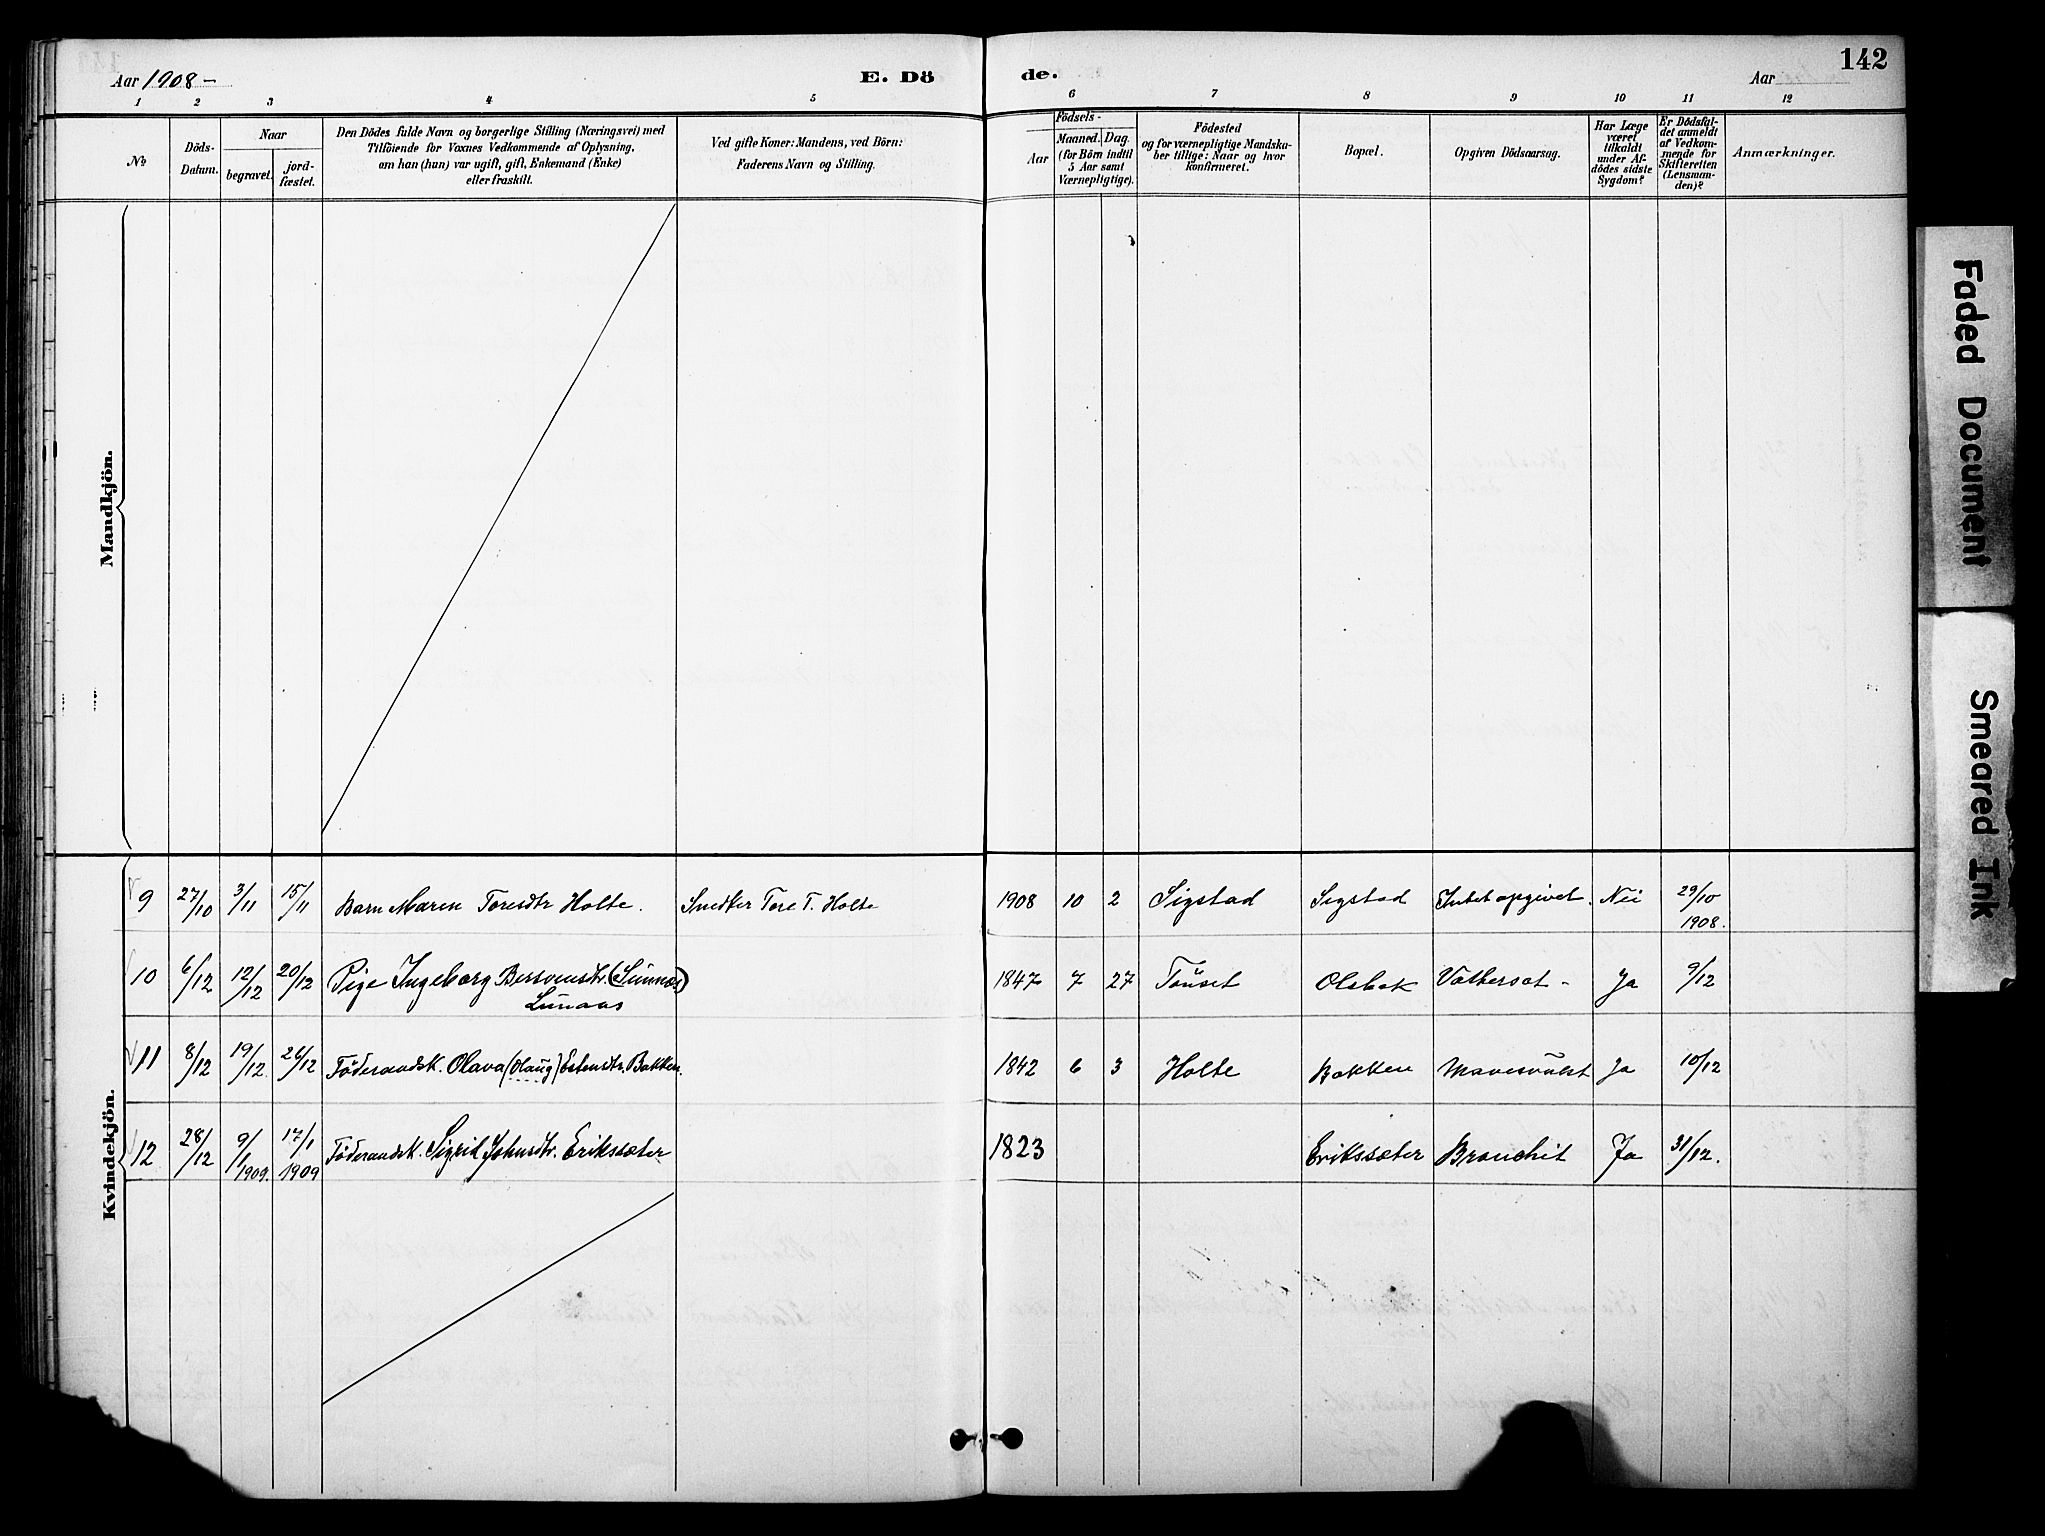 142
Aar 1908 –
E. Dö
de.
Aar
1 2 3 4 5 6 7 8 9 10 11 12
No
Döds-Datum.
Naar
begravet.
jord-fæstet.
Den Dödes fulde Navn og borgerlige Stilling (Næringsvei) med
Tilföiende for Voxnes Vedkommende af Oplysning,
om han (hun) var ugift, gift, Enkemand (Enke)
eller fraskilt.
Ved gifte Koner: Mandens, ved Börn:
Faderens Navn og Stilling.
Födsels-
Aar
Maaned. Dag.
(for Börn indtil
5 Aar samt
Værnepligtige).
Födested
og for værnepligtige Mandska-
ber tillige: Naar og hvor
konfirmeret.
Bopæl.
Opgiven Dödsaarsag.
Har Læge
været
tilkaldt
under Af-
dödes sidste
Sygdom?
Er Dödsfal-
det anmeldt
af Vedkom-
mende for
Skifteretten
(Lensman-
den)?
Anmærkninger.
Mandkjön.
Kvindekjön.
9 27/10 3/11 15/11 Barn Maren Toresdtr Holte. Snedker Tore T. Holte 1908 10 2 Sigstad Sigstad Intet opgivet. Nei 29/10
1908.
10 6/12 12/12 20/12 Pige Ingeborg Bersvensdtr. (Sunnes) 1847 7 27 Tönset Olsbak Vattersot - Ja 9/12
Lunaas
11 8/12 19/12 26/12 Föderaadsk. Olava (Olaug) Estensdtr. Bakken. 1842 6 3 Holte Bakken Mavesvulst Ja 10/12
12 28/12 9/1 1909. 17/1 1909 Föderaadsk. Sigrid Johnsdtr. Erikssæter 1823 Erikssæter Bronchit Ja 31/12.
Faded Document
Smeared Ink